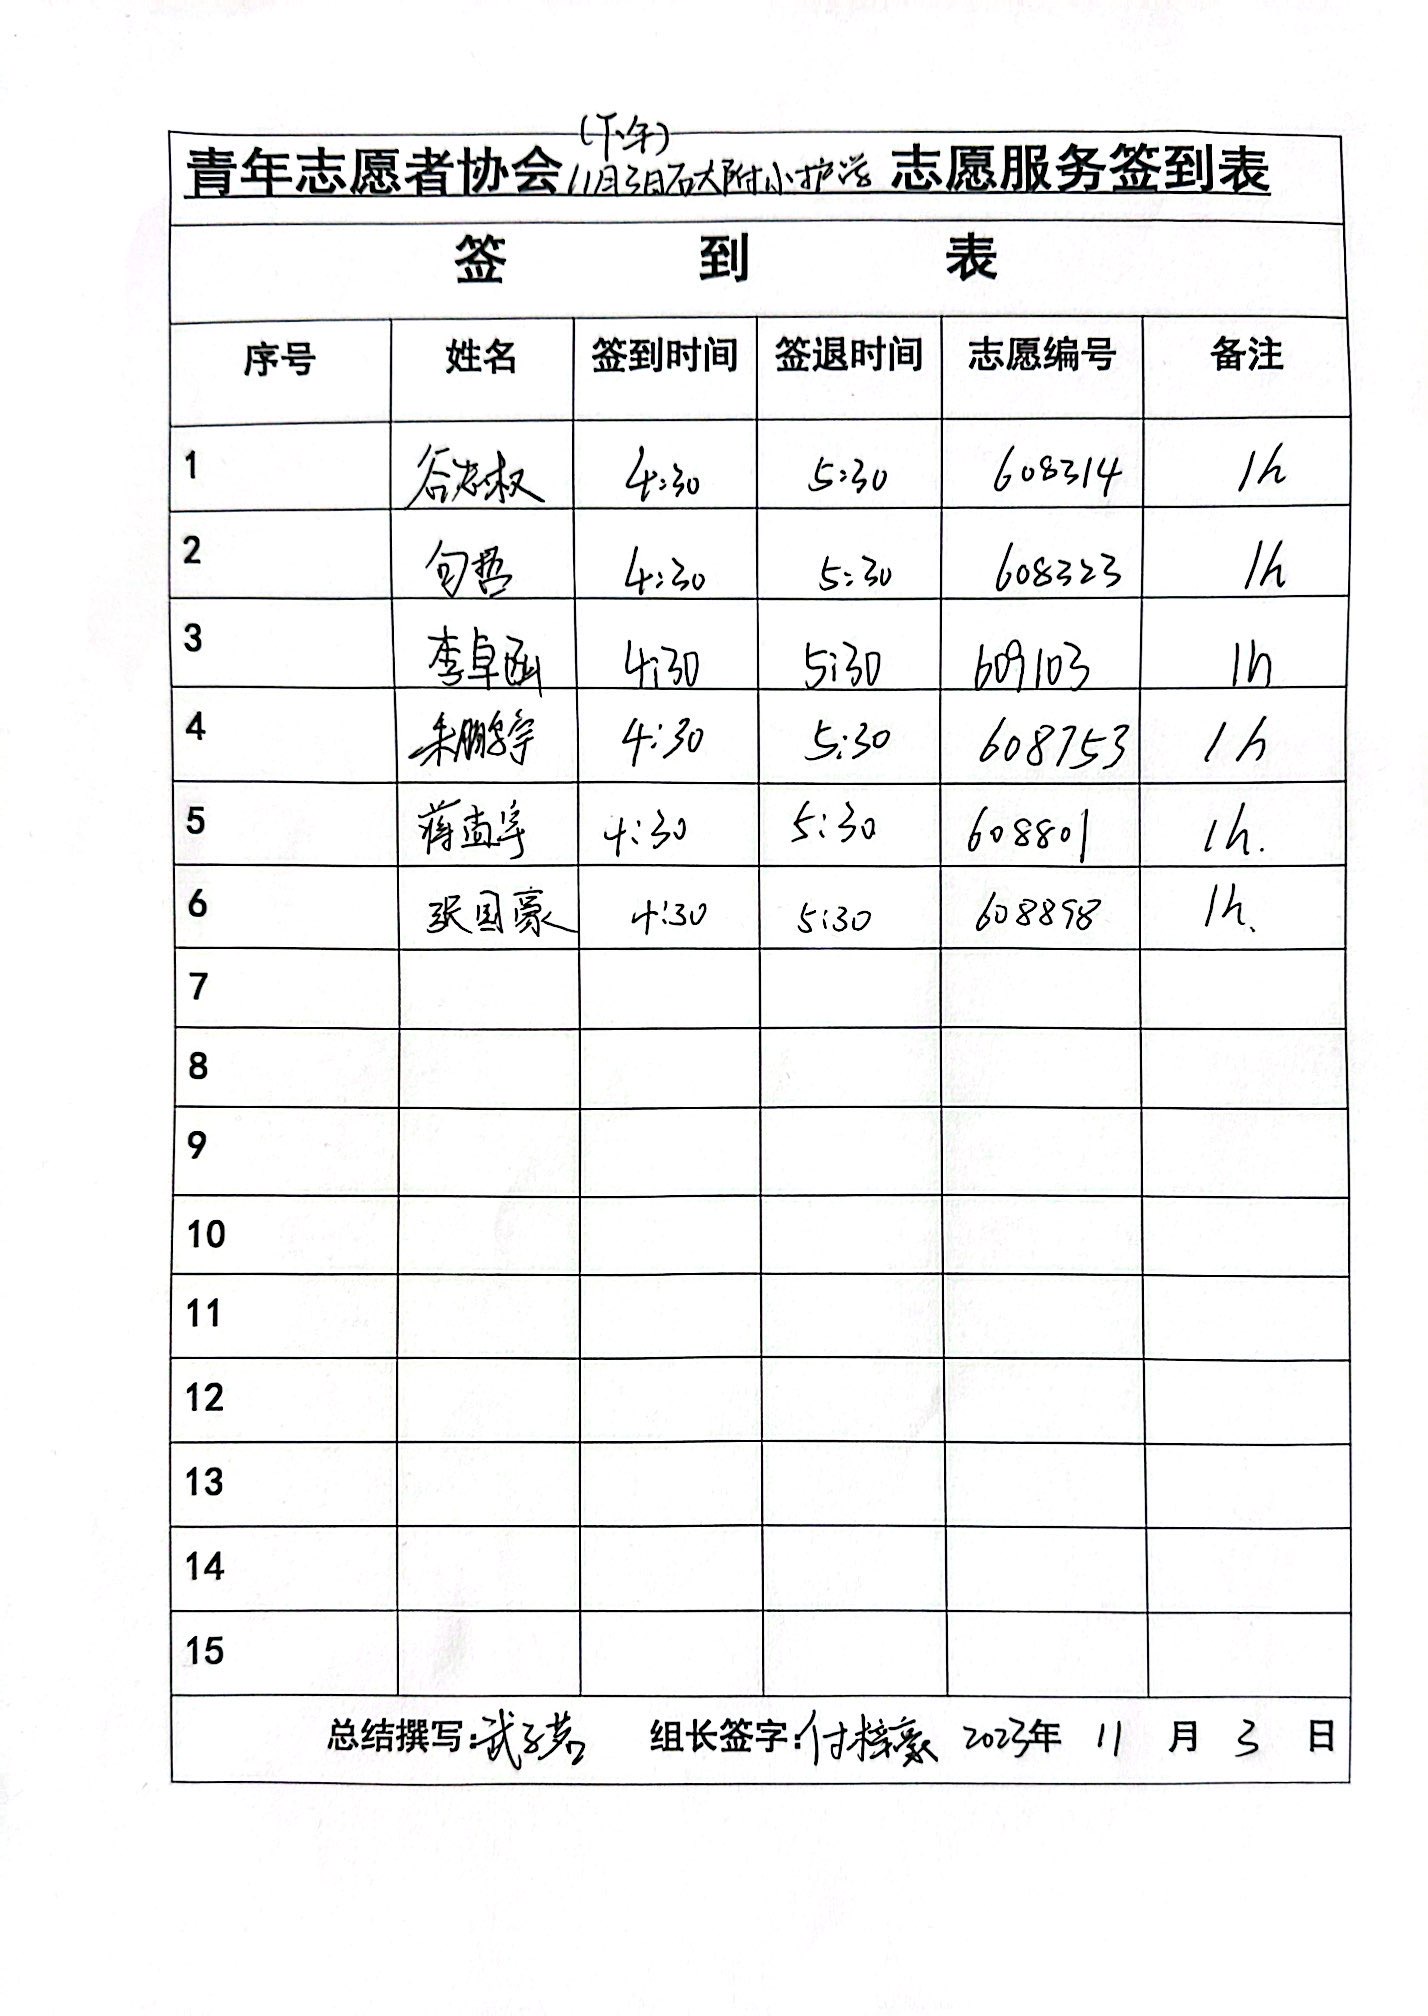 (下午)
青年志愿者协会11月3日石大附小护学 志愿服务签到表
签 到 表
序号 姓名 签到时间 签退时间 志愿编号 备注
1 谷志权 4:30 5:30 608314 1h
2 句哲 4:30 5:30 608323 1h
3 李卓函 4:30 5:30 609103 1h
4 4:30 5:30 608753 1h
5 蒋尚宇 4:30 5:30 608801 1h.
6 张国豪 4:30 5:30 608898 1h.
7
8
9
10
11
12
13
14
15
总结撰写:武子茗 组长签字:付梓豪 2023年 11 月 3 日